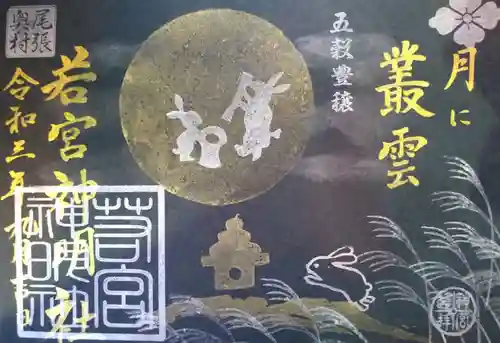 月に
叢雲
五穀豊穣
尾張
奥村
若宮神明社
令和三年
若宮
神明社